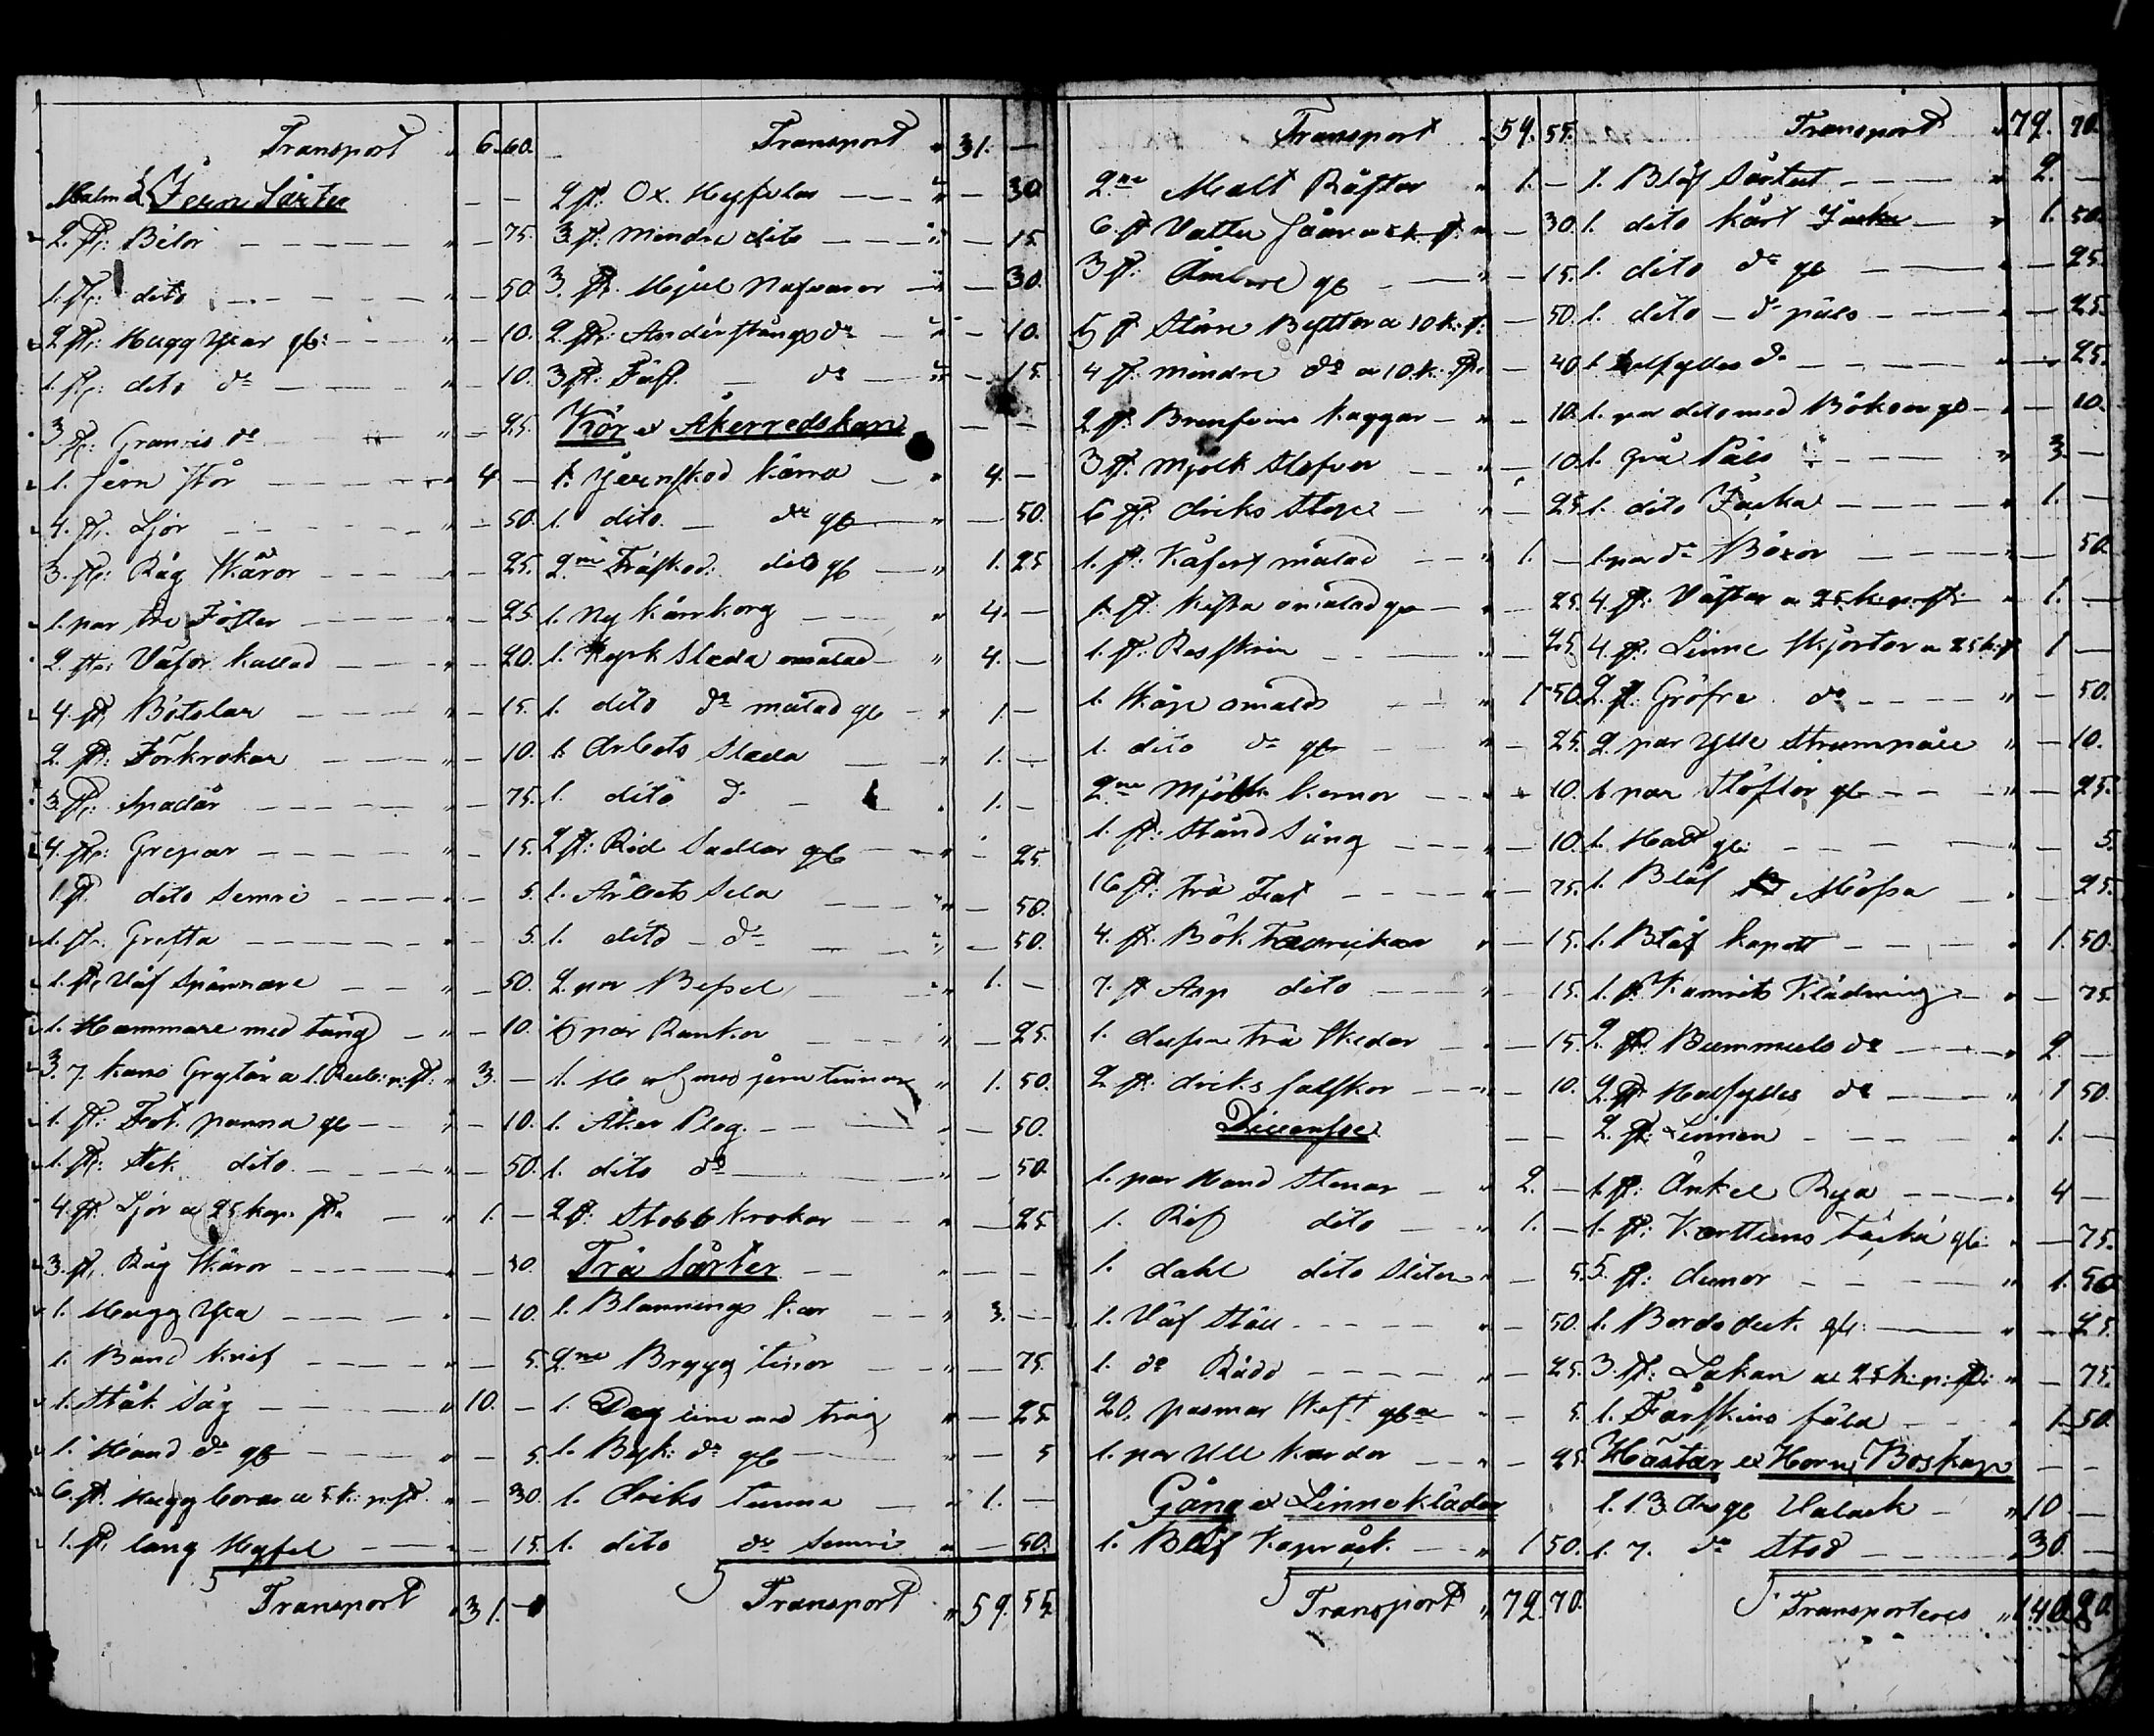 Transport " 6. 60.
Malm & Jern Sarter - -
2. st: Bilor " - 75.
1. st: dito " - 50.
2 st: Hugg Yxar gb: " - 10.
1. st: dito do " - 10.
3 st: do " - 25.
1. Jern stör " 4 -
4. st. Ljör " - 50.
3. st: Råg Skäror " - 25.
1. par Fötter " - 25.
2 st: kallad " - 20.
4. st. Båtslar " - 15.
2. st: Förkrokar " - 10.
3. st: Spadar " - 75.
4. st: Grepar " - 15.
1 st. dito Semre " - 5.
1. st. Grefta " - 5.
1. st. Väf Spännare " - 50.
1. Hammare med tång " - 10.
3. 7. kans Grytor a 1. Rub: p: st: " 3. -
1. st: Fot. panna gb " - 10.
1. st: Stek dito " - 50.
4. st. Ljör a 25 kop. st. " 1. -
3. st. Råg Skäror " - 30.
1. Hugg Yxa " - 10.
1. Band Knif " - 5.
1. Ståk Såg " 10. -
1. Hand do gb " - 5.
6. st. Hugg borar a 5 k: p: st. " - 30.
1. st. lång Hyfel " - 15.
Transport " 31. -
Transport " 31. -
2 st: Ox. Hyflar " - 30.
3. st: Mindre dito " - 15.
3. st. Hjul Nafvaror " - 30.
2 st: do " - 10.
3 st: do " - 15.
Kör & Åkerredskap - -
1. Jernskod Kärra " 4. -
1. dito do gb " - 50.
2ne Träskod: dito gb " 1. 25
1. Ny kärrkorg " 4. -
1. Kyrk Släda omålad " 4. -
1. dito do målad gb " 1. -
1. Arbets Släda " 1. -
1. dito do " 1. -
2 st: Rid Sadlar gb " - 25
1. Arbets Sela " - 50.
1. dito do " - 50.
2. par Betsel " 1. -
6 par Rankor " - 25.
1. med jern tinnar " 1. 50.
1. Åker Plog " - 50.
1. dito do " - 50.
2 st: Stobb Krokar " - 25
Trä Sarter " - -
1. Blannings kar " 3. -
2ne Brygg tinor " - 75.
1. Deg tina med tråg " - 25.
1. Byk: do gb " - 5
1. Driks Tunna " 1. -
1. dito do Semre " - 50.
Transport " 59. 55.
Transport " 59. 55.
2ne Malt Råstor " 1. -
6. st Vatten a 5 k. st. " - 30.
3 st: Ämbare gb " - 15.
5 st Större Byttor a 10 k. st: - 50.
4 st: mindre do a 10. k. st. - 40.
2 st: Brenvins kaggar " - 10.
3 st. Mjölk Stefvor " - 10.
6 st: driks Stop " - 25
1. st: Kåfert målad " 1. -
1. st: Kista omålad gb " - 25.
1. st: Resskrin " - 25
1. Skåp omålad " 1 50.
1. dito do gb " - 25.
2ne Mjölk kernor " - 10.
1. st: Ståndsäng " - 10.
16 st: Trä Fat " - 75.
4. st. Bök. Tallrickar " - 15.
7. st Asp dito " - 15.
1. dussin trä Skedar " - 15.
2 st: driks falskor " - 10.
Diverse - -
1. par Hand Stenar " 2. -
1. Rif dito " 1. -
1. dahl dito sliten " - 5.
1. Väf Ställ " - 50.
1. do Rädd " - 25.
20. pasmar Skaft gba " - 5.
1. par Ull kardor " - 25.
Gång & Linnekläder
1. Blåf Kapråck " 1 50.
Transport " 79. 70.
Transport " 79. 70.
1. Blåf Sårtut " 2. -
1. dito kårt Jacka " 1. 50.
1. dito do gb - 25.
1. dito do päls " - 25.
1. halfylles do " - 25.
1. par dito med Böksor gb - 20.
1. grå Päls " 3. -
1. dito Jacka " 1. -
1. par do Böxor " - 50.
4. st: Västar a 25. k: p: st: " 1. -
4. st. Linne Skjortor a 25 k: st 1 -
2. st: Gröfre do " - 50.
2. par Ylle Strumpårr " - 10.
6 par Stöflor gb " - 25.
1. Hatt gb: - 5.
1. Blåf Mössa " - 25.
1. Blåf kapott " 1. 50.
1. st Klädning " - 75.
2. st: Bummuls do " 2 -
2 st Halfylles do " 1 50.
2. st. Linnen " 1. -
1. st: Änkel Rya " 4 -
1. st: Kattuns täcke gb: " - 75.
5. st: dunor " 1. 50
1. Bordsduk gb: " - 25.
3. st: Lakan a 25 k: p: st: " - 75.
1. Fårskins fäld " 1. 50.
Hästar & Horn Boskap - -
1. 13. års gl Valack " 10 -
1. 7. do Sto " 30. -
Transporteres " 140. 20.